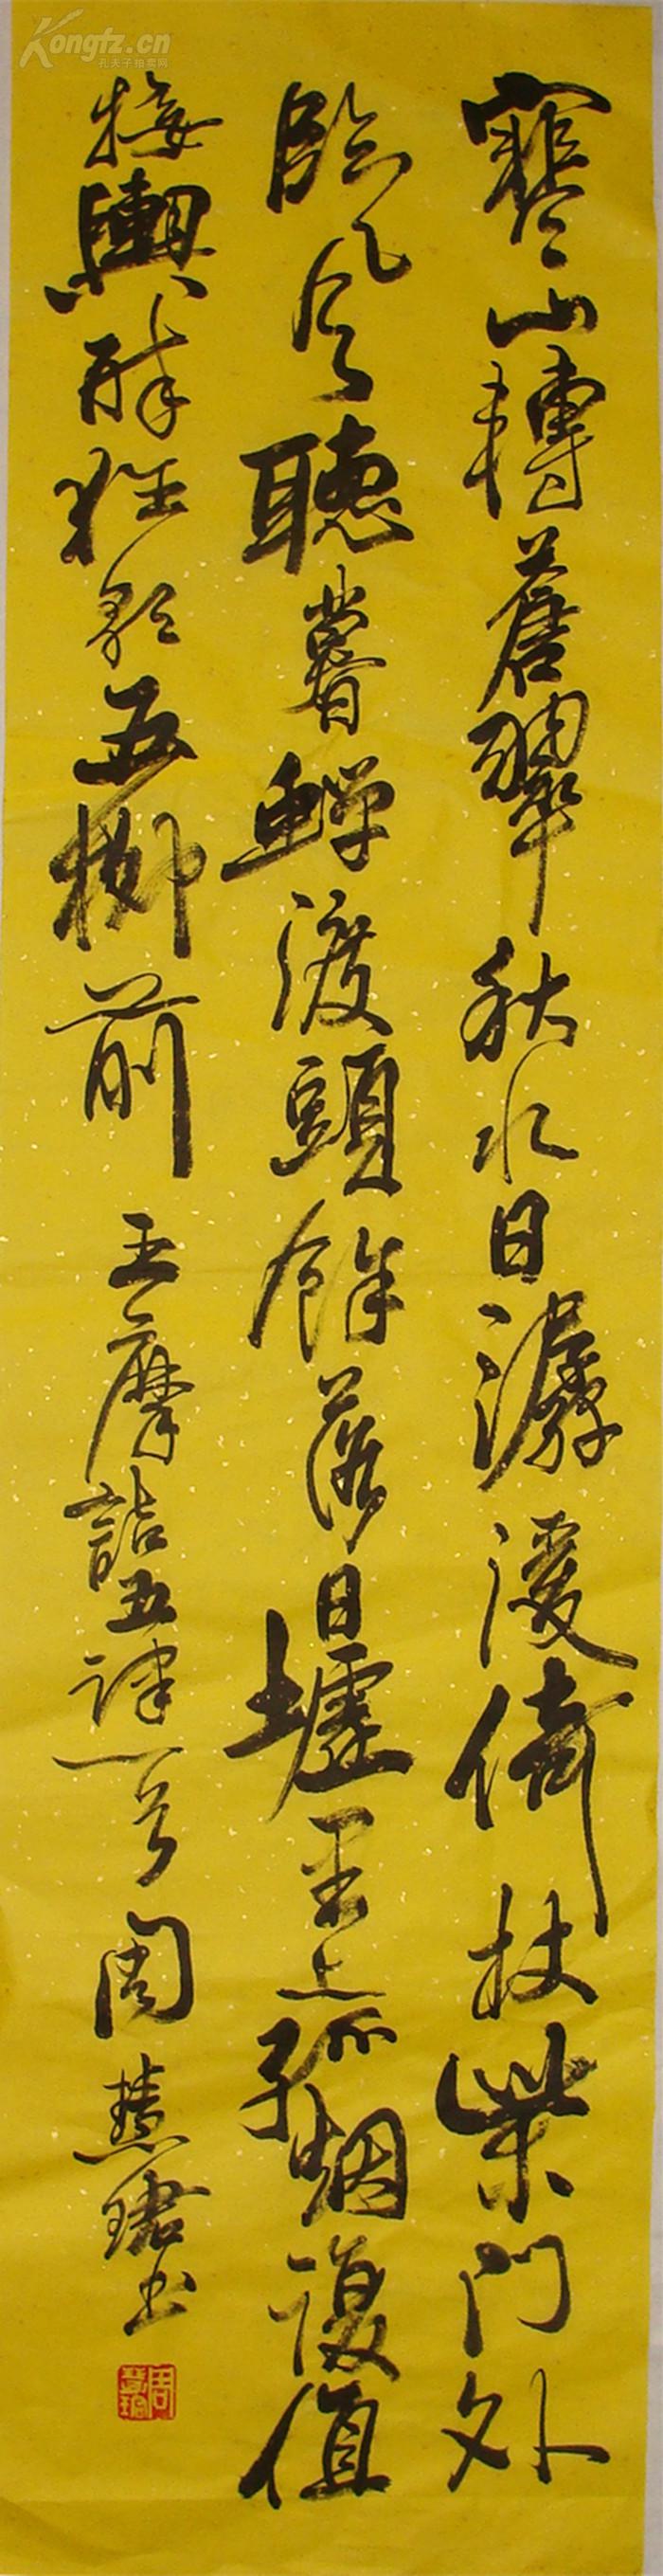 寒山轉蒼翠秋水日潺湲倚杖柴門外
臨風聽暮蟬渡頭餘落日墟里上孤烟復值
接輿醉狂歌五柳前
王摩詰五律一首 周慧珺书
周慧珺
Kongfz.cn
孔夫子拍卖网